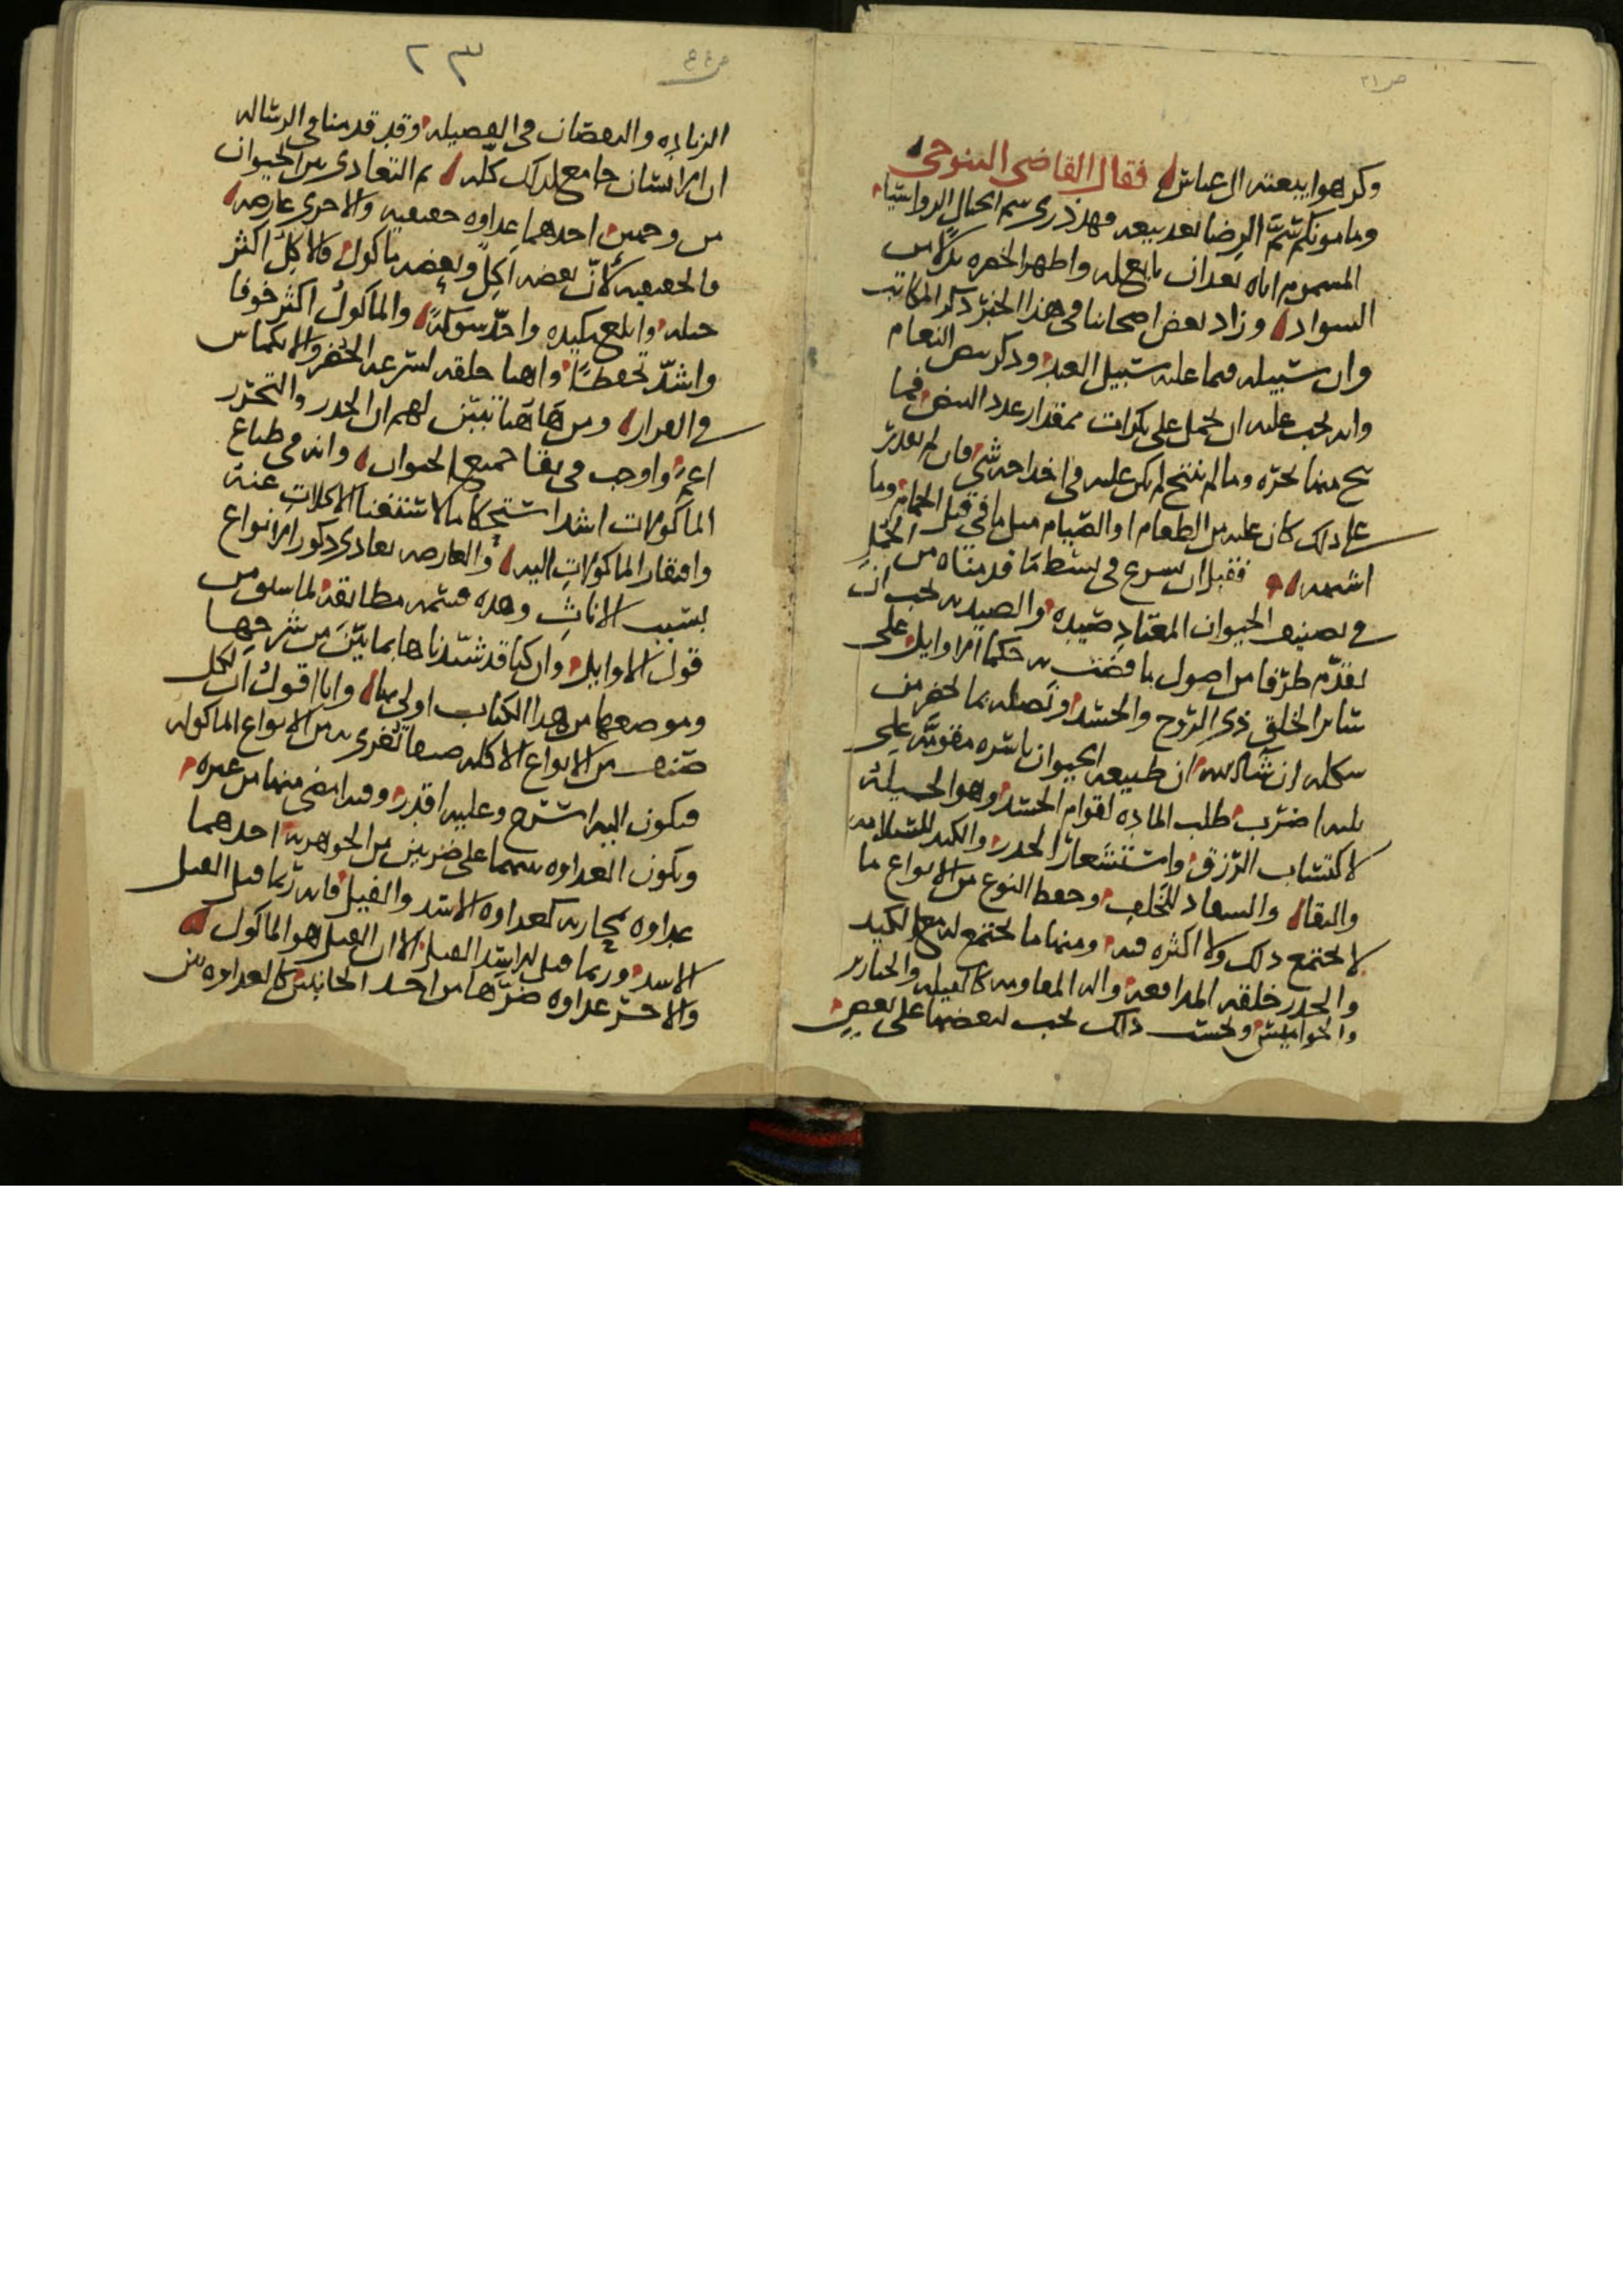 ص ٢١
وكرهوا بيعته ال عباس فقال القاضي التنوخي
ومامونكم سم الرضا بعد بيعه فهد ذرى سم الجبال الرواسيا
المسموم اياه بعد ان بايع له واظهر الخضره بدلا من
السواد وزاد بعض اصحابنا في هذا الخبر ذكر المكاتب
وان سبيله فيما عليه سبيل العبد وذكر بيض النعام
وانه يجب عليه ان يحمل على بكرات بمقدار عدد البيض فما
نتج منها نحره وما لم ينتج لم يكن عليه في اخداجه شي فان لم يقدر
على ذلك كان عليه من الطعام او الصيام مثل ما في قتل الحمام وما
اشبهه فقبل ان نسرع في بسط ما قدمناه من الجمل
في تصنيف الحيوان المعتاد صيده والصيد به يجب ان
نقدم طرفا من اصول ما قضت به حكما الاوايل على
ساير الخلق ذي الروح والجسد ونصله بما يحضر من
شكله ان شا الله ان طبيعه الحيوان باسره مقومه على
ثلثه اضرب طلب الماده لقوام الجسد وهو الحيله
لاكتساب الرزق واستشعار الحذر والكيد للسلامه
والبقا والسفاد للخلف وحفظ النوع من الانواع ما
لا يجتمع ذلك ولا اكثره فيه ومنها ما يجتمع له مع الكيد
والحذر خلقه المدافعه واله المقاومه كالفيله والخنازير
والجواميس وبحسب ذلك يجب لبعضها على بعض
٢٣
الزياده والنقصان في الفضيله وقد قدمنا في الرساله
ان الانسان جامع لذلك كله ثم التعادى بين الحيوان
من وجهين احدهما عداوه حقيقيه والاخرى عارضه
فالحقيقيه لان بعضه اكل وبعضه ماكول فالاكل اكثر
حيله وابلغ مكيده واحد شوكة والماكول اكثر خوفا
واشد تحفظا واهيا خلقه لسرعه الحضر والانكماش
في الفرار ومن هاهنا تبين لهم ان الحذر والتحرز
اعم واوجب في بقا جميع الحيوان وانه في طباع
الماكولات اشد استحكاما لاستغنا الاكلات عنه
وافتقار الماكولات اليه والعارضه تعادى ذكور الانواع
بسبب الاناث وهذه قسمه مطابقه لما سلف من
قول الاوايل وان كنا قد شيدناها بما بين من شرحها
وموضعها من هذا الكتاب اولى بنا وانا اقول ان لكل
صنف من الانواع الاكله صنفا تغرى به من الانواع الماكوله
فيكون اليه اشره وعليه اقدر وفيه امضى منها من غيره
وتكون العداوه بينهما على ضربين من الجوهريه احدهما
عداوه تجاريه كعداوه الاسد والفيل فانه ربما قتل الفيل
الاسد وربما قتل الاسد الفيل الا ان الفيل هو الماكول
والاخر عداوه ضرها من احد الجانبين كالعداوه بين